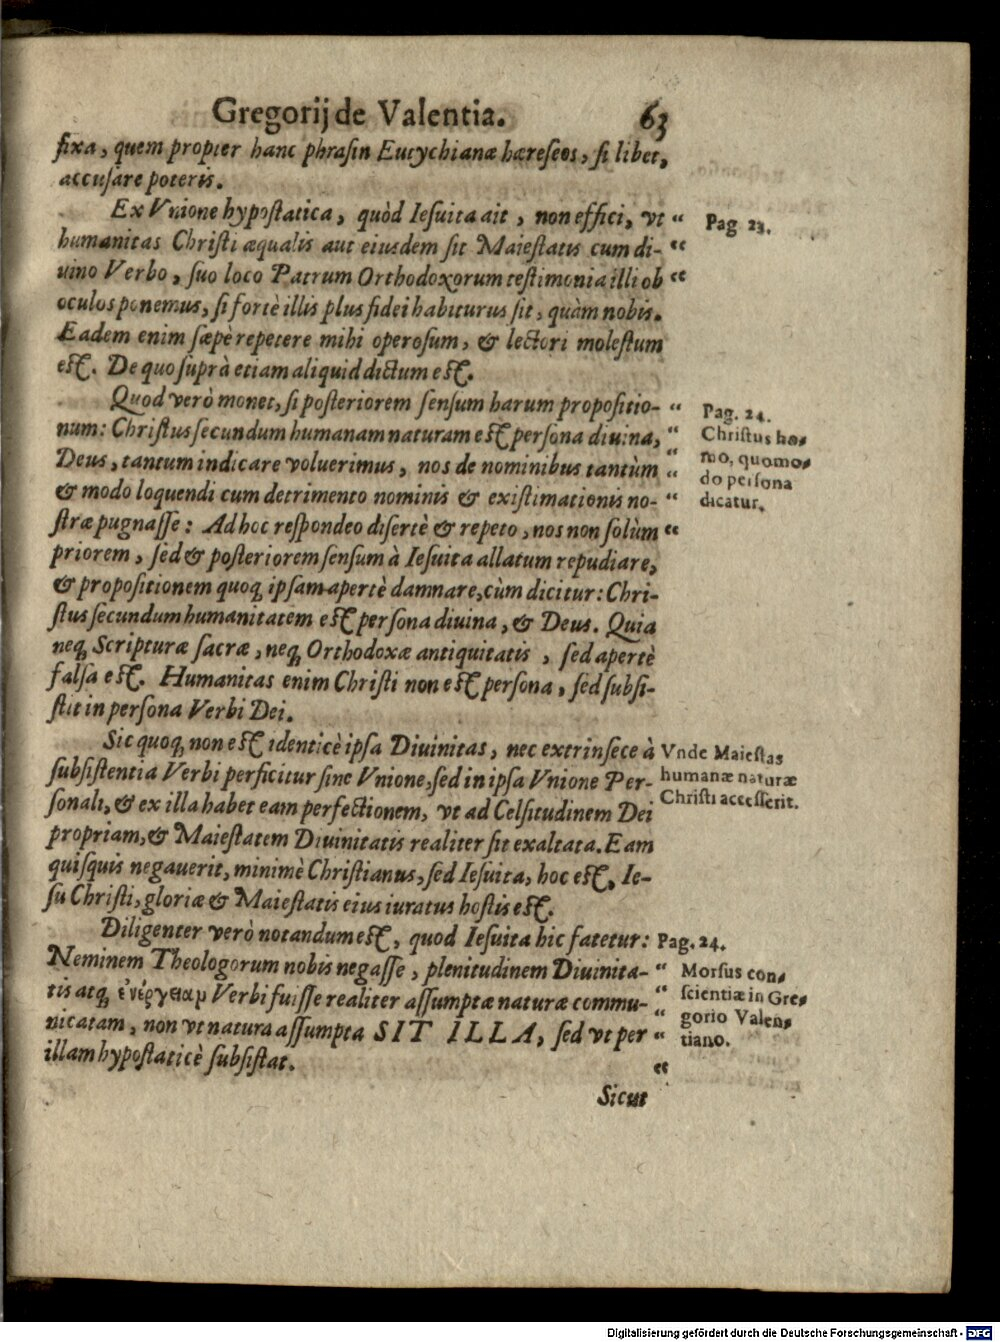 Gregorij de Valentia. 63
fixa, quem propter hanc phrasin Eutychianæ hæreseos, si libet,
accusare poteris.
Ex Vnione hypostatica, quòd Iesuita ait, non effici, vt “ Pag 23.
humanitas Christi æqualis aut eiusdem sit Maiestatis cum di- “
uino Verbo, suo loco Patrum Orthodoxorum testimonia illi ob “
oculos ponemus, si fortè illis plus fidei habiturus sit, quàm nobis.
Eadem enim sæpè repetere mihi operosum, & lectori molestum
est. De quo suprà etiam aliquid dictum est.
Quod verò monet, si posteriorem sensum harum propositio- “ Pag. 24.
num: Christus secundum humanam naturam est persona diuina, “ Christus ho-
Deus, tantum indicare voluerimus, nos de nominibus tantùm “ mo, quomo-
& modo loquendi cum detrimento nominis & existimationis no- “ do persona
stræ pugnasse: Ad hoc respondeo disertè & repeto, nos non solùm “ dicatur.
priorem, sed & posteriorem sensum à Iesuita allatum repudiare,
& propositionem quoq; ipsam apertè damnare, cùm dicitur: Chri-
stus secundum humanitatem est persona diuina, & Deus. Quia
neq; Scripturæ sacræ, neq; Orthodoxæ antiquitatis, sed apertè
falsa est. Humanitas enim Christi non est persona, sed subsi-
stit in persona Verbi Dei.
Sic quoq; non est identicè ipsa Diuinitas, nec extrinsece à Vnde Maiestas
subsistentia Verbi perficitur sine Vnione, sed in ipsa Vnione Per- humanæ naturæ
sonali, & ex illa habet eam perfectionem, vt ad Celsitudinem Dei Christi accesserit.
propriam, & Maiestatem Diuinitatis realiter sit exaltata. Eam
quisquis negauerit, minimè Christianus, sed Iesuita, hoc est, Ie-
su Christi, gloriæ & Maiestatis eius iuratus hostis est.
Diligenter verò notandum est, quod Iesuita hic fatetur: Pag. 24.
Neminem Theologorum nobis negasse, plenitudinem Diuinita- “ Morsus con-
tis atq; ἐνέργειαμ Verbi fuisse realiter assumptæ naturæ commu- “ scientiæ in Gre-
nicatam, non vt natura assumpta SIT ILLA, sed vt per “ gorio Valen-
illam hypostaticè subsistat. “ tiano.
Sicut
Digitalisierung gefördert durch die Deutsche Forschungsgemeinschaft - DFG